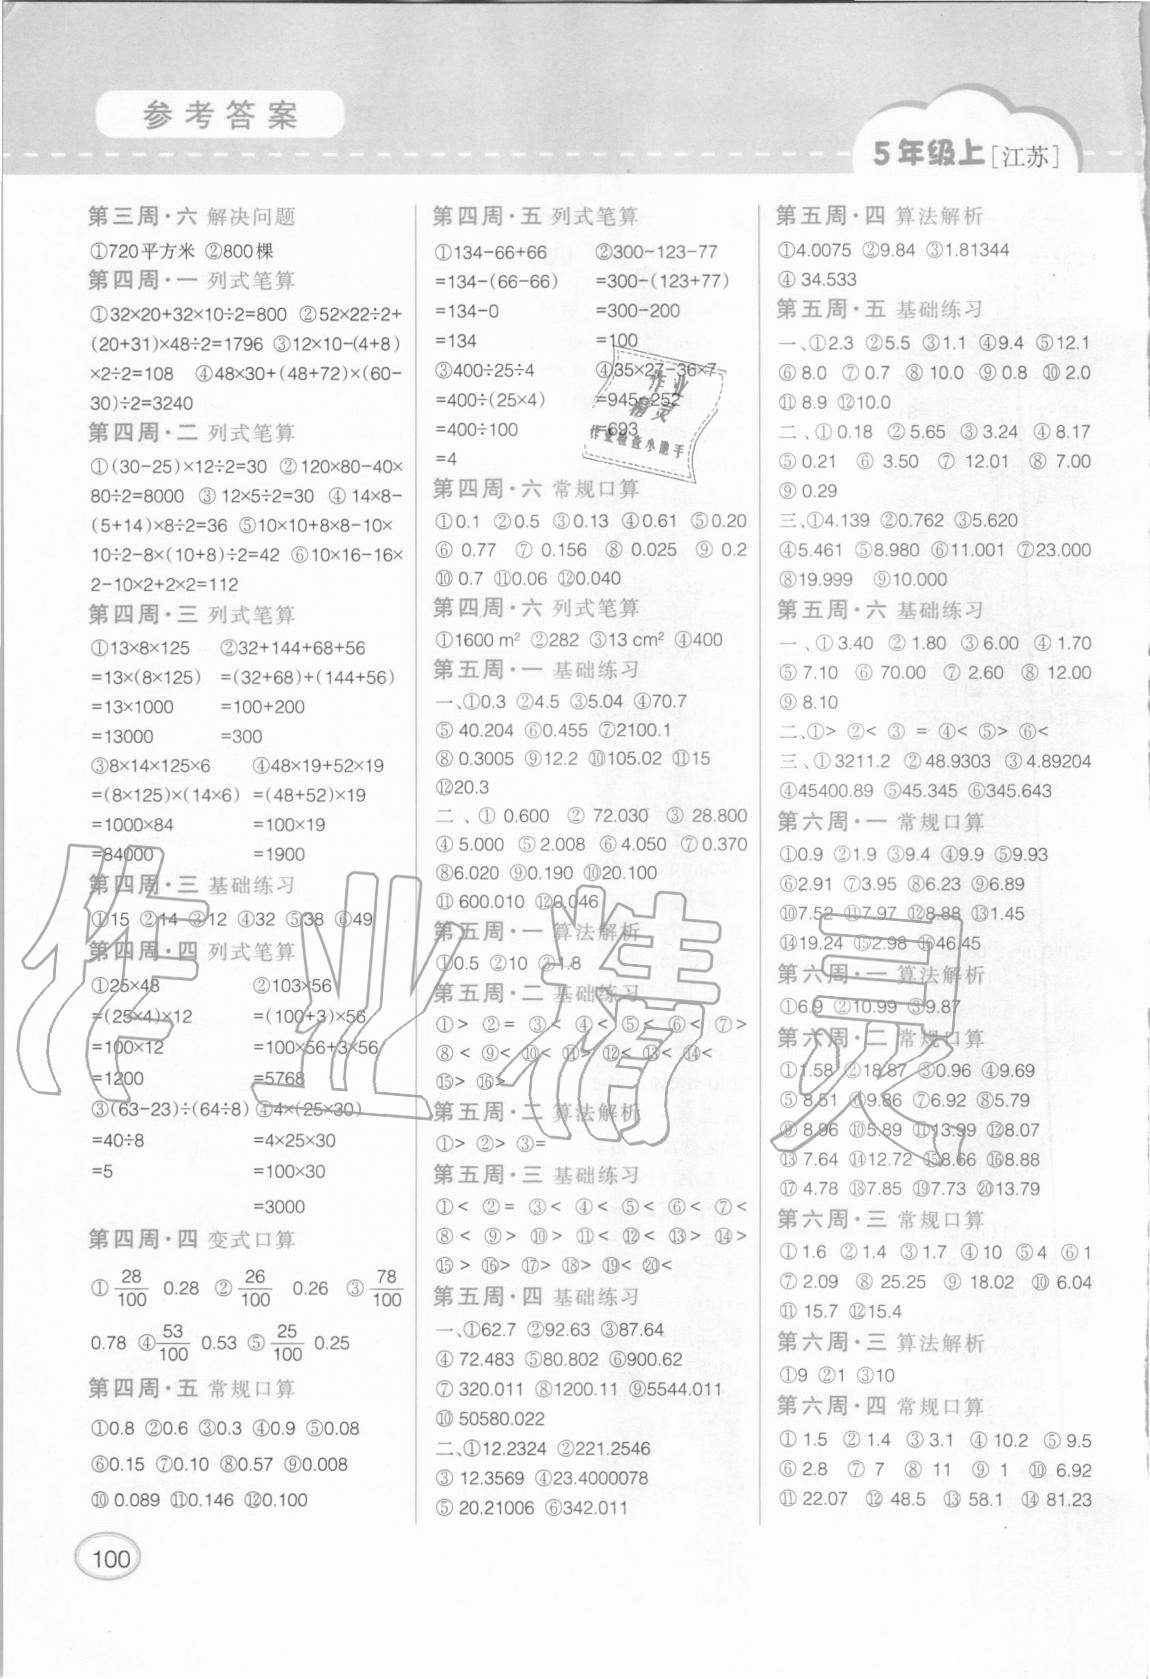 参考答案
5年级上[江苏]
第三周·六 解决问题
①720平方米 ②800棵
第四周·一 列式笔算
①32×20+32×10÷2=800 ②52×22÷2+
(20+31)×48÷2=1796 ③12×10-(4+8)
×2÷2=108 ④48×30+(48+72)×(60-
30)÷2=3240
第四周·二 列式笔算
①(30-25)×12÷2=30 ②120×80-40×
80÷2=8000 ③12×5÷2=30 ④14×8-
(5+14)×8÷2=36 ⑤10×10+8×8-10×
10÷2-8×(10+8)÷2=42 ⑥10×16-16×
2-10×2+2×2=112
第四周·三 列式笔算
①13×8×125 ②32+144+68+56
=13×(8×125) =(32+68)+(144+56)
=13×1000 =100+200
=13000 =300
③8×14×125×6 ④48×19+52×19
=(8×125)×(14×6) =(48+52)×19
=1000×84 =100×19
=84000 =1900
第四周·三 基础练习
①15 ②14 ③12 ④32 ⑤38 ⑥49
第四周·四 列式笔算
①25×48 ②103×56
=(25×4)×12 =(100+3)×56
=100×12 =100×56+3×56
=1200 =5768
③(63-23)÷(64÷8) ④4×(25×30)
=40÷8 =4×25×30
=5 =100×30
=3000
第四周·四 变式口算
①28/100 0.28 ②26/100 0.26 ③78/100
0.78 ④53/100 0.53 ⑤25/100 0.25
第四周·五 常规口算
①0.8 ②0.6 ③0.3 ④0.9 ⑤0.08
⑥0.15 ⑦0.10 ⑧0.57 ⑨0.008
⑩0.089 ⑪0.146 ⑫0.100
100
第四周·五 列式笔算
①134-66+66 ②300-123-77
=134-(66-66) =300-(123+77)
=134-0 =300-200
=134 =100
③400÷25÷4 ④35×27-36×7
=400÷(25×4) =945-252
=400÷100 =693
=4
第四周·六 常规口算
①0.1 ②0.5 ③0.13 ④0.61 ⑤0.20
⑥0.77 ⑦0.156 ⑧0.025 ⑨0.2
⑩0.7 ⑪0.06 ⑫0.040
第四周·六 列式笔算
①1600 m² ②282 ③13 cm² ④400
第五周·一 基础练习
一、①0.3 ②4.5 ③5.04 ④70.7
⑤40.204 ⑥0.455 ⑦2100.1
⑧0.3005 ⑨12.2 ⑩105.02 ⑪15
⑫20.3
二、①0.600 ②72.030 ③28.800
④5.000 ⑤2.008 ⑥4.050 ⑦0.370
⑧6.020 ⑨0.190 ⑩20.100
⑪600.010 ⑫9.046
第五周·一 算法解析
①0.5 ②10 ③1.8
第五周·二 基础练习
①> ②= ③< ④< ⑤< ⑥< ⑦>
⑧< ⑨< ⑩< ⑪> ⑫< ⑬< ⑭<
⑮> ⑯>
第五周·二 算法解析
①> ②> ③=
第五周·三 基础练习
①< ②= ③< ④< ⑤< ⑥< ⑦<
⑧< ⑨> ⑩> ⑪< ⑫< ⑬> ⑭>
⑮> ⑯> ⑰> ⑱> ⑲< ⑳<
第五周·四 基础练习
一、①62.7 ②92.63 ③87.64
④72.483 ⑤80.802 ⑥900.62
⑦320.011 ⑧1200.11 ⑨5544.011
⑩50580.022
二、①12.2324 ②221.2546
③12.3569 ④23.4000078
⑤20.21006 ⑥342.011
第五周·四 算法解析
①4.0075 ②9.84 ③1.81344
④34.533
第五周·五 基础练习
一、①2.3 ②5.5 ③1.1 ④9.4 ⑤12.1
⑥8.0 ⑦0.7 ⑧10.0 ⑨0.8 ⑩2.0
⑪8.9 ⑫10.0
二、①0.18 ②5.65 ③3.24 ④8.17
⑤0.21 ⑥3.50 ⑦12.01 ⑧7.00
⑨0.29
三、①4.139 ②0.762 ③5.620
④5.461 ⑤8.980 ⑥11.001 ⑦23.000
⑧19.999 ⑨10.000
第五周·六 基础练习
一、①3.40 ②1.80 ③6.00 ④1.70
⑤7.10 ⑥70.00 ⑦2.60 ⑧12.00
⑨8.10
二、①> ②< ③= ④< ⑤> ⑥<
三、①3211.2 ②48.9303 ③4.89204
④45400.89 ⑤45.345 ⑥345.643
第六周·一 常规口算
①0.9 ②1.9 ③9.4 ④9.9 ⑤9.93
⑥2.91 ⑦3.95 ⑧6.23 ⑨6.89
⑩7.52 ⑪7.97 ⑫8.88 ⑬1.45
⑭19.24 ⑮2.98 ⑯46.45
第六周·一 算法解析
①6.9 ②10.99 ③9.87
第六周·二 常规口算
①1.58 ②18.87 ③0.96 ④9.69
⑤8.51 ⑥9.86 ⑦6.92 ⑧5.79
⑨8.96 ⑩5.89 ⑪13.99 ⑫8.07
⑬7.64 ⑭12.72 ⑮8.66 ⑯8.88
⑰4.78 ⑱7.85 ⑲7.73 ⑳13.79
第六周·三 常规口算
①1.6 ②1.4 ③1.7 ④10 ⑤4 ⑥1
⑦2.09 ⑧25.25 ⑨18.02 ⑩6.04
⑪15.7 ⑫15.4
第六周·三 算法解析
①9 ②1 ③10
第六周·四 常规口算
①1.5 ②1.4 ③3.1 ④10.2 ⑤9.5
⑥2.8 ⑦7 ⑧11 ⑨1 ⑩6.92
⑪22.07 ⑫48.5 ⑬58.1 ⑭81.23
作业
精灵
作业检查小助手
作业精灵